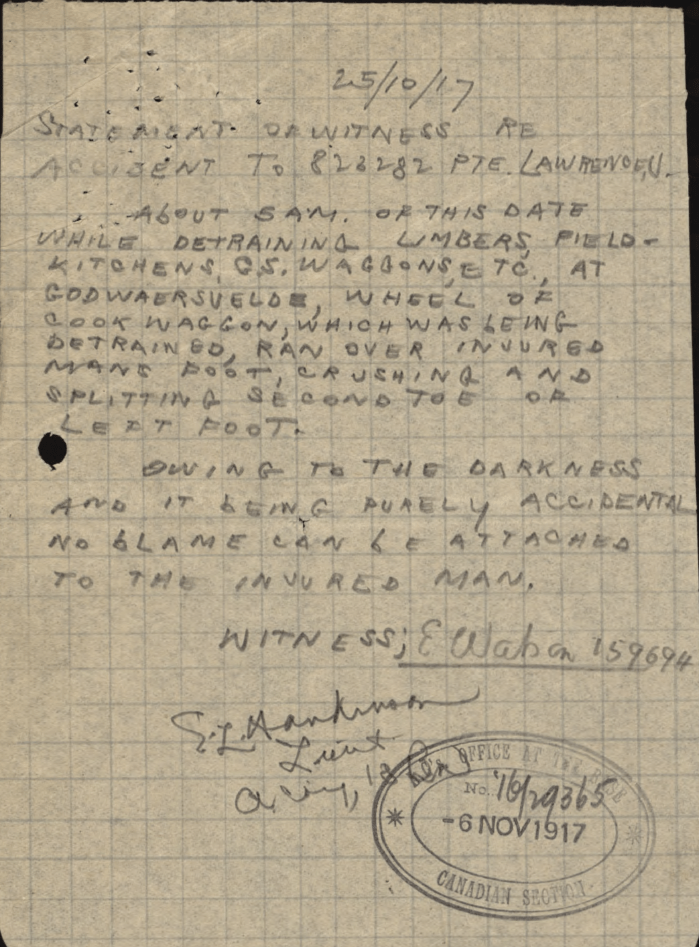 25/10/17
STATEMENT OF WITNESS RE
ACCIDENT TO 823282 PTE. LAWRENCE, J.
ABOUT 5 AM. OF THIS DATE
WHILE DETRAINING LIMBERS, FIELD-
KITCHENS, G.S. WAGGONS, ETC., AT
GODWAERSVELDE, WHEEL OF
COOK WAGGON, WHICH WAS BEING
DETRAINED, RAN OVER INJURED
MANS FOOT, CRUSHING AND
SPLITTING SECOND TOE OF
LEFT FOOT.
OWING TO THE DARKNESS
AND IT BEING PURELY ACCIDENTAL
NO BLAME CAN BE ATTACHED
TO THE INJURED MAN.
WITNESS; E Watson 159694
E.L. Hankinson
Lieut
OFFICE AT THE BASE
No. 16/29365
-6 NOV 1917
CANADIAN SECTION